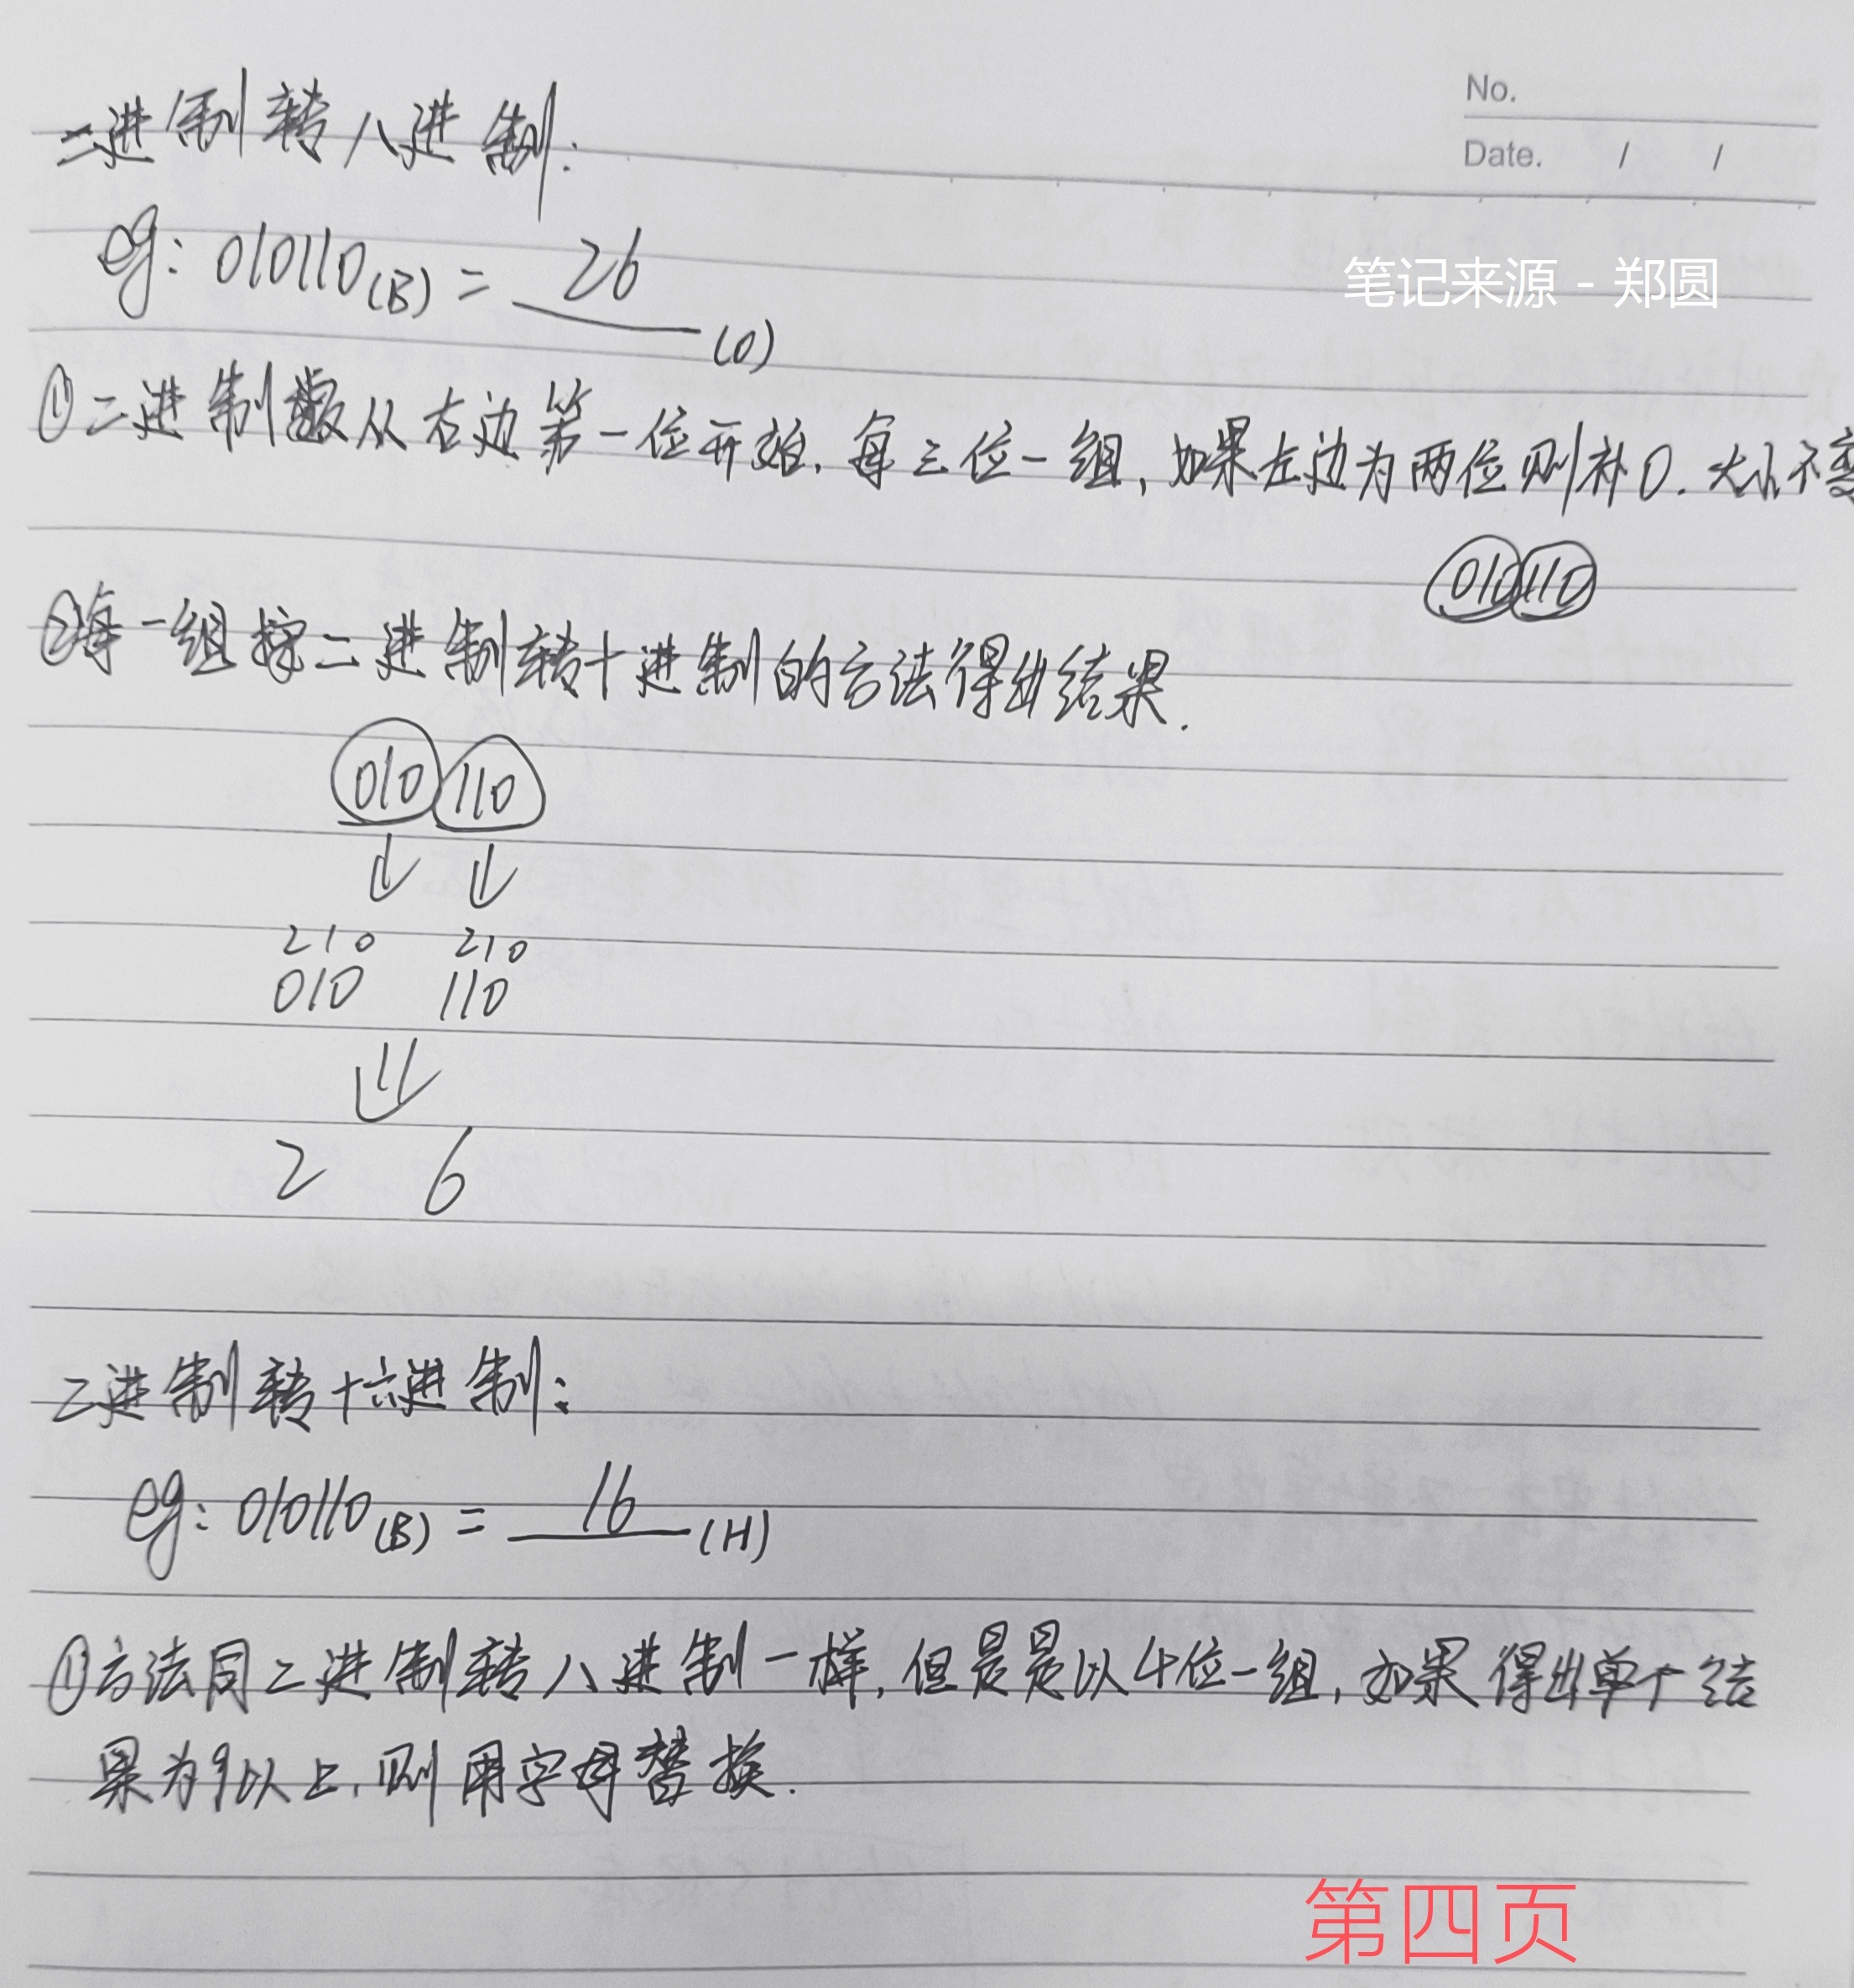 No.
Date. / /
二进制转八进制:
笔记来源 - 郑圆
eg: 010110(B) = 26 (O)
①二进制数从右边第一位开始,每三位一组,如果左边为两位则补0.大小不变
010 110
②每一组按二进制转十进制的方法得出结果.
010 110
210 210
010 110
2 6
二进制转十六进制:
eg: 010110(B) = 16 (H)
①方法同二进制转八进制一样,但是是以4位一组,如果得出单个结
果为9以上,则用字母替换.
第四页